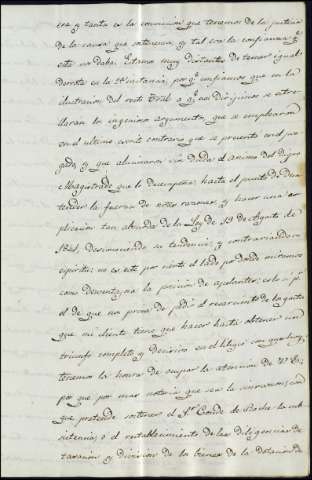 era y tanta es la conviccion que tenemos de la justicia
de la causa que sostenemos y tal era la confianza qe
este no daba. Estamos muy distantes de temer igual
derrota en la 2ª instancia, por qe confiamos que en la
ilustracion del recto Tribl a qe nos dirijimos se estre-
llaran los ingeniosos argumentos que se emplearon
en el ultimo escrito contrario que se presentó en el juz-
gado, y que alucinaron sin duda el animo del digno
Magistrado que lo desempeña hasta el punto de des-
atender la fuerza de estas razones y hacer una a-
plicacion tan absurda de la Ley de 19 de Agosto de
1841, desconociendo su tendencia y contrariando su
espiritu: no es este por cierto el lado por donde miramos
como desventajosa la posicion de apelantes: esto si pr
el de que nos priva de pedir el resarcimto de los gastos
que mi cliente tiene que hacer hasta obtener un
triunfo completo y decisivo en el litijio con que hoy
tenemos la honra de ocupar la atencion de V. E.
por que por mas notoria que sea la sinrazon con
que pretende sostener el Sr Conde de la sub-
sistencia, ó el restablecimiento de las diligencias de
tasacion y division de los bienes de la dotacion de